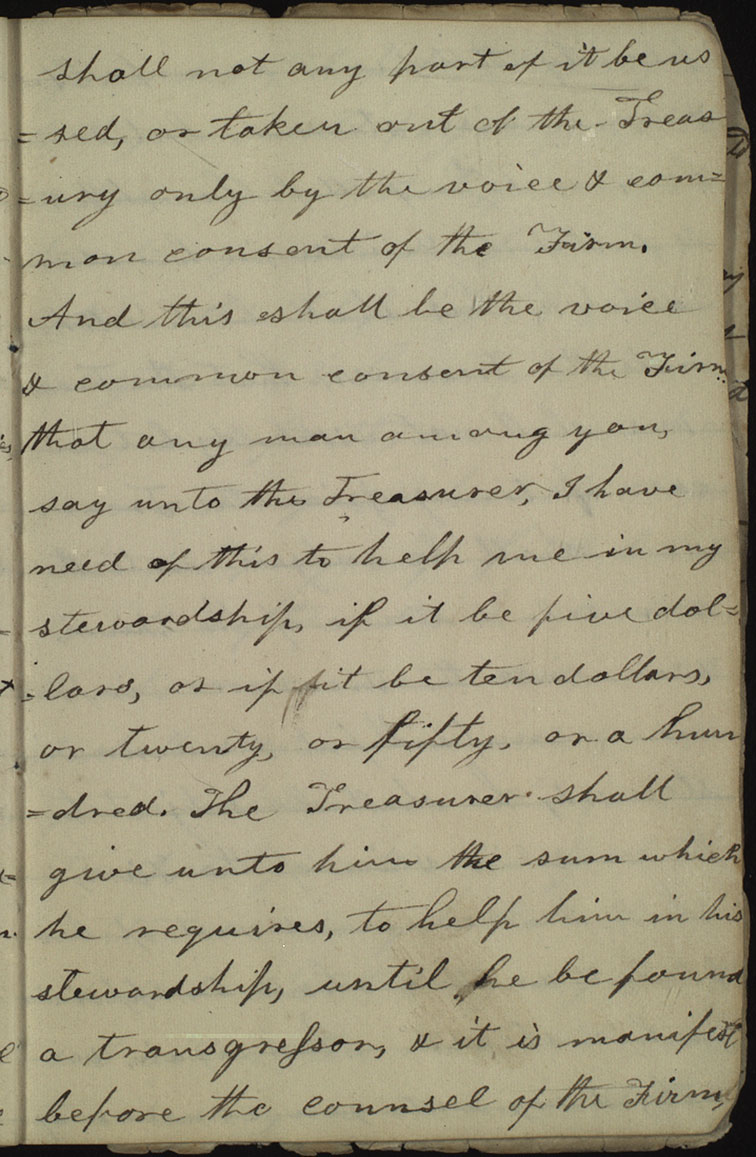 shall not any part of it be us
=sed, or taken out of the Treas
=ury only by the voice & com=
mon consent of the Firm.
And this shall be the voice
& common consent of the Firm.
that any man among you,
say unto the Treasurer, I have
need of this to help me in my
stewardship, if it be five dol=
=lars, or if it be ten dollars,
or twenty, or fifty, or a hun
=dred. The Treasurer shall
give unto him the sum which
he requires, to help him in his
stewardship, until he be found
a transgressor, & it is manifest
before the counsel of the Firm,